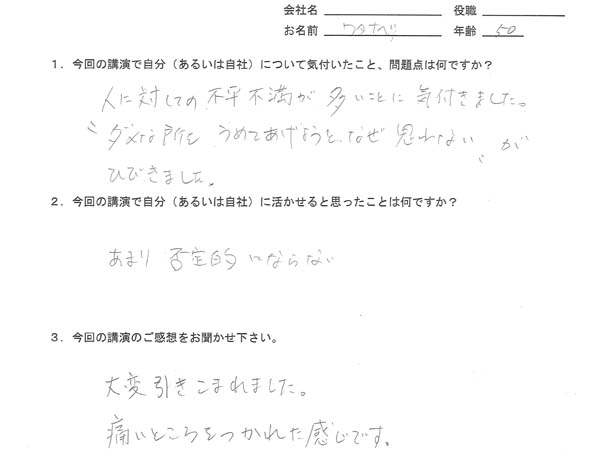 会社名 役職
お名前 ワタナベ 年齢 50
１．今回の講演で自分（あるいは自社）について気付いたこと、問題点は何ですか？
人に対しての不平不満が多いことに気付きました。
〝ダメな所を うめてあげようと、なぜ 思わない〟が
ひびきました。
２．今回の講演で自分（あるいは自社）に活かせると思ったことは何ですか？
あまり 否定的にならない
３．今回の講演のご感想をお聞かせ下さい。
大変引きこまれました。
痛いところをつかれた感じです。